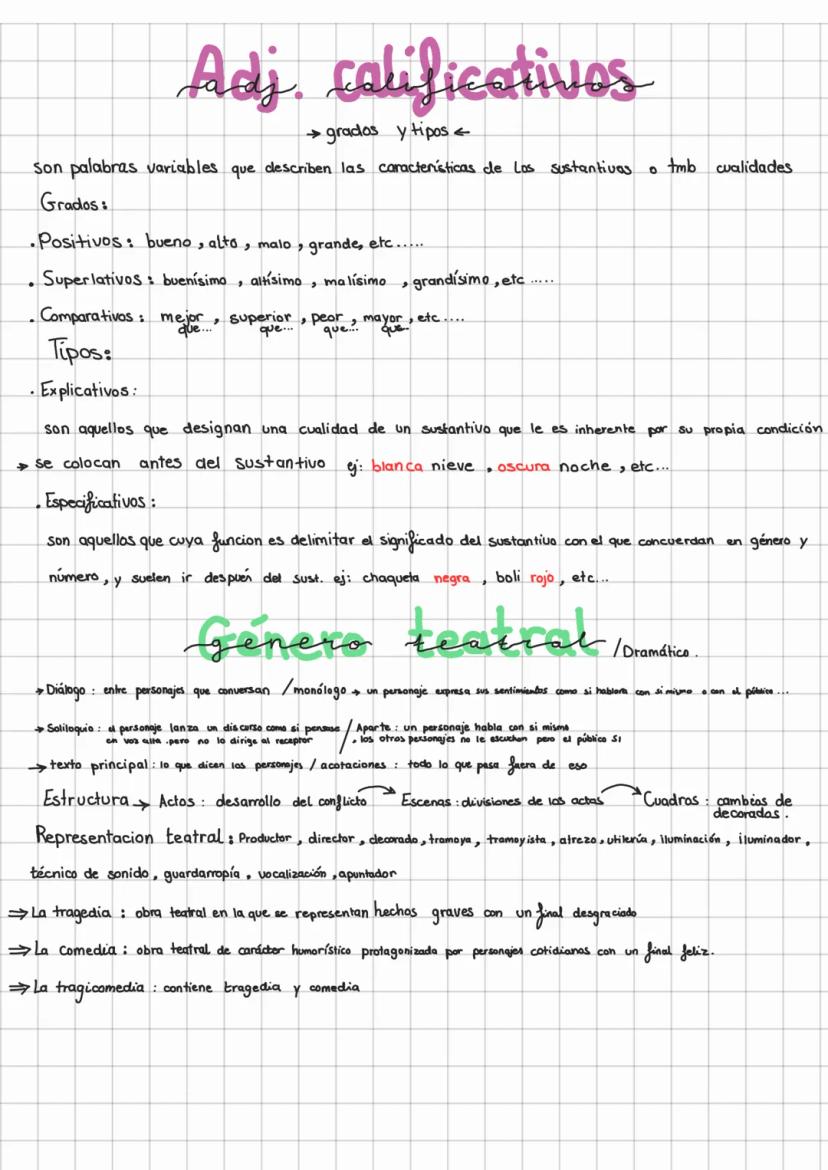 Adj. calificativos
adj. calificativos
→ grados y tipos ←
son palabras variables que describen las características de los sustantivos o tmb cualidades
Grados:
. Positivos: bueno, alto, malo, grande, etc.....
. Superlativos: buenísimo, altísimo, malísimo, grandísimo, etc.....
. Comparativos: mejor, superior, peor, mayor, etc....
que... que... que... que...
Tipos:
. Explicativos:
son aquellos que designan una cualidad de un sustantivo que le es inherente por su propia condición
→ se colocan antes del sustantivo ej: blanca nieve, oscura noche, etc...
. Especificativos:
son aquellos que cuya funcion es delimitar el significado del sustantivo con el que concuerdan en género y
número, y suelen ir después del sust. ej: chaqueta negra, boli rojo, etc...
Género teatral
género teatral /Dramático.
→ Diálogo: entre personajes que conversan / monólogo → un personaje expresa sus sentimientos como si hablara con si mismo o con el público...
→ Soliloquio: el personaje lanza un discurso como si pensase / Aparte: un personaje habla con si mismo
en voz alta. pero no lo dirige al receptor . los otros personajes no le escuchen pero el público SI
→ texto principal: lo que dicen los personajes / acotaciones: todo lo que pasa fuera de eso
Estructura → Actos: desarrollo del conflicto → Escenas: divisiones de los actos → Cuadros: cambios de
decorados.
Representacion teatral: Productor, director, decorado, tramoya, tramoyista, atrezo, utilería, iluminación, iluminador,
técnico de sonido, guardarropía, vocalización, apuntador
⇒ La tragedia: obra teatral en la que se representan hechos graves con un final desgraciado
⇒ La comedia: obra teatral de carácter humorístico protagonizada por personajes cotidianos con un final feliz.
⇒ La tragicomedia: contiene tragedia y comedia